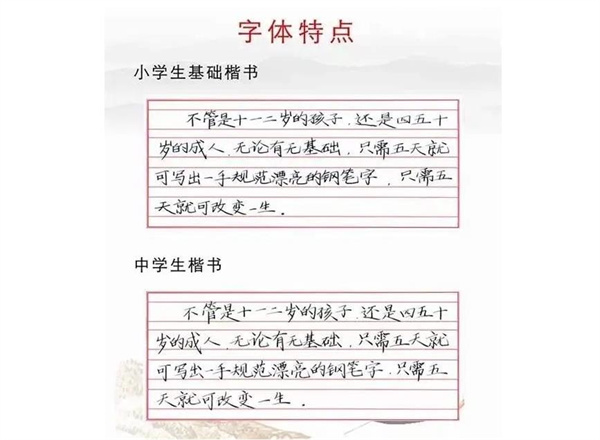 字体特点
小学生基础楷书
不管是十一二岁的孩子.还是四五十
岁的成人.无论有无基础.只需五天就
可写出一手规范漂亮的钢笔字.只需五
天就可改变一生.
中学生楷书
不管是十一二岁的孩子.还是四五十
岁的成人.无论有无基础.只需五天就
可写出一手规范漂亮的钢笔字.只需五
天就可改变一生.